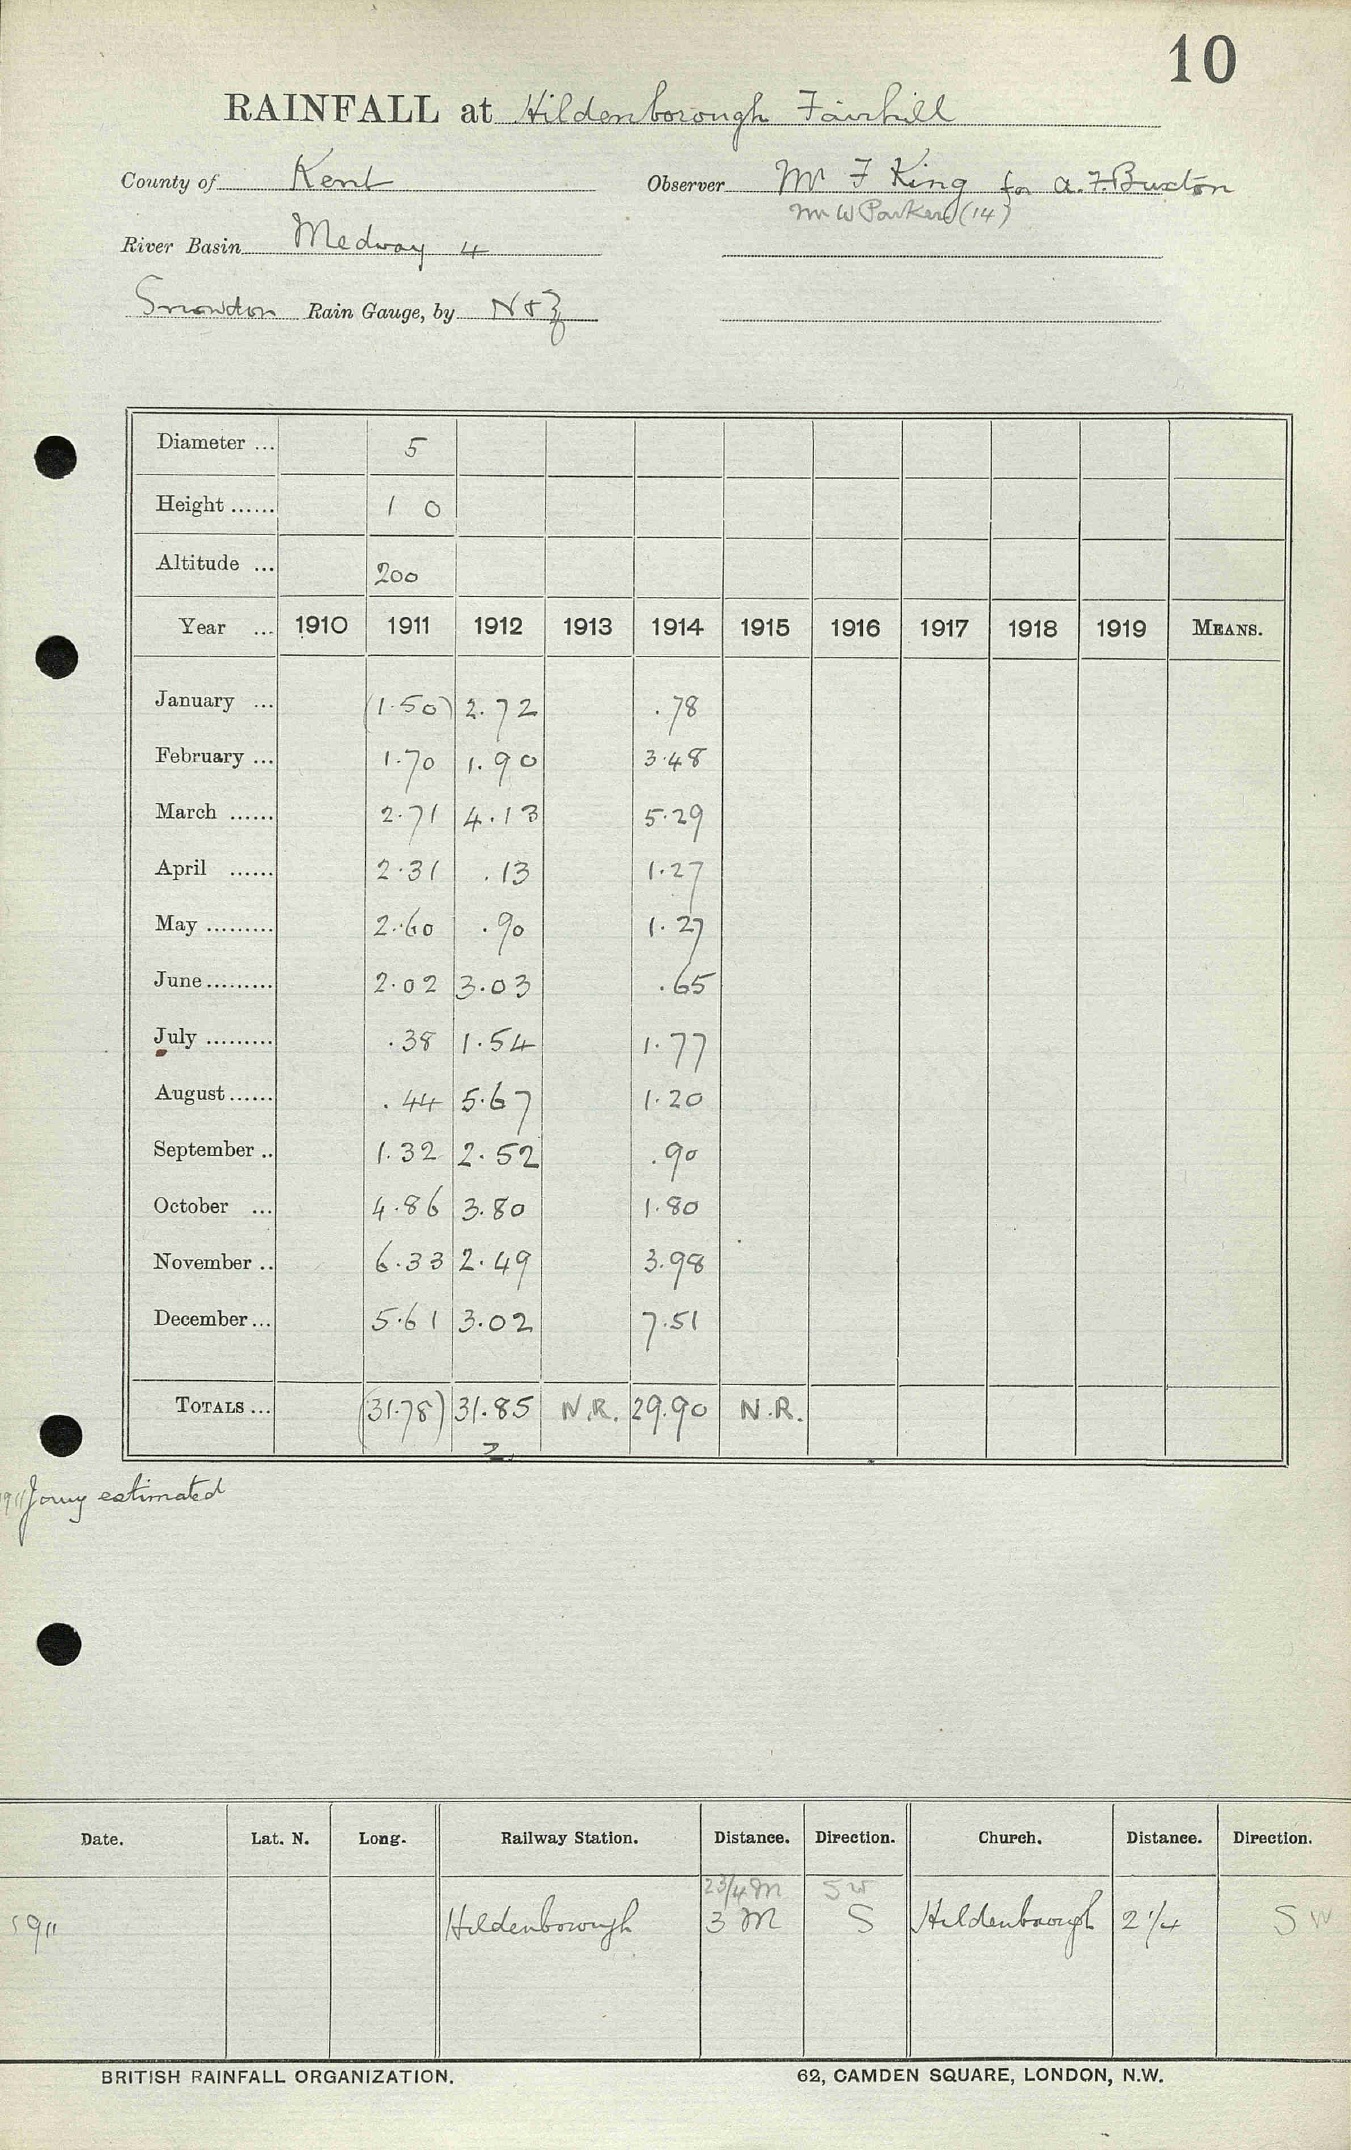 10
RAINFALL at Hildenborough Fairhill
County of Kent Observer Mr F King for A.F. Buxton
Mr W Parker (14)
River Basin Medway 4
Snowdon Rain Gauge, by N & Z
Diameter ... 5
Height ...... 1 0
Altitude ... 200
Year ... 1910 1911 1912 1913 1914 1915 1916 1917 1918 1919 MEANS.
January ... (1.50) 2.72 .78
February ... 1.70 1.90 3.48
March ...... 2.71 4.13 5.29
April ...... 2.31 .13 1.27
May ......... 2.60 .90 1.27
June ......... 2.02 3.03 .65
July ......... .38 1.54 1.77
August ...... .44 5.67 1.20
September .. 1.32 2.52 .90
October ... 4.86 3.80 1.80
November .. 6.33 2.49 3.98
December ... 5.61 3.02 7.51
TOTALS ... (31.78) 31.85 N.R. 29.90 N.R.
2
1911 Jany estimated
Date. Lat. N. Long. Railway Station. Distance. Direction. Church. Distance. Direction.
2 3/4 M SW
1911 Hildenborough 3 M S Hildenborough 2 1/4 S W
BRITISH RAINFALL ORGANIZATION. 62, CAMDEN SQUARE, LONDON, N.W.